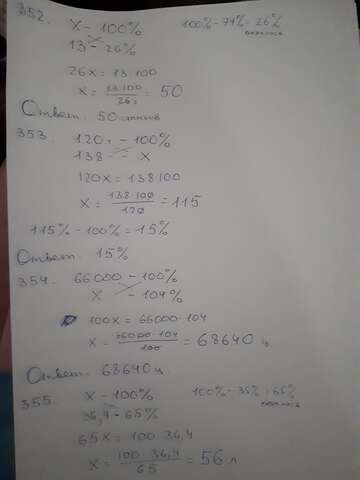 352. x - 100% 100% - 74% = 26%
13 - 26% осталось
26x = 13·100
x = 13·100/26 = 50
Ответ: 50 станков
353. 120 - 100%
138 - x
120x = 138·100
x = 138·100/120 = 115
115% - 100% = 15%
Ответ: 15%
354. 66000 - 100%
x - 104%
100x = 66000·104
x = 66000·104/100 = 68640 ц
Ответ: 68640 ц
355. x - 100% 100% - 35% = 65%
36,4 - 65% осталось
65x = 100·36,4
x = 100·36,4/65 = 56 л